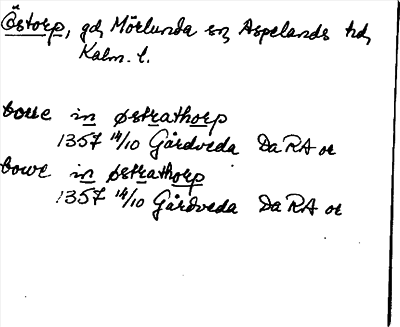 Östorp, gd, Mörlunda sn, Aspelands hd,
Kalm. l.
bowe in østrathorp
1357 14/10 Gårdveda DaRA or
bowe in østrathorp
1357 14/10 Gårdveda DaRA or